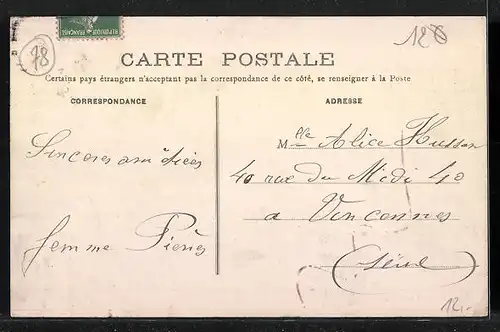 REPUBLIQUE FRANÇAISE
78
128
CARTE POSTALE
Certains pays étrangers n'acceptant pas la correspondance de ce côté, se renseigner à la Poste
CORRESPONDANCE
ADRESSE
Sincères amitiées
femme
Mlle Alice Husson
40 rue du Midi 40
a Vincennes
(Seine)
12.-